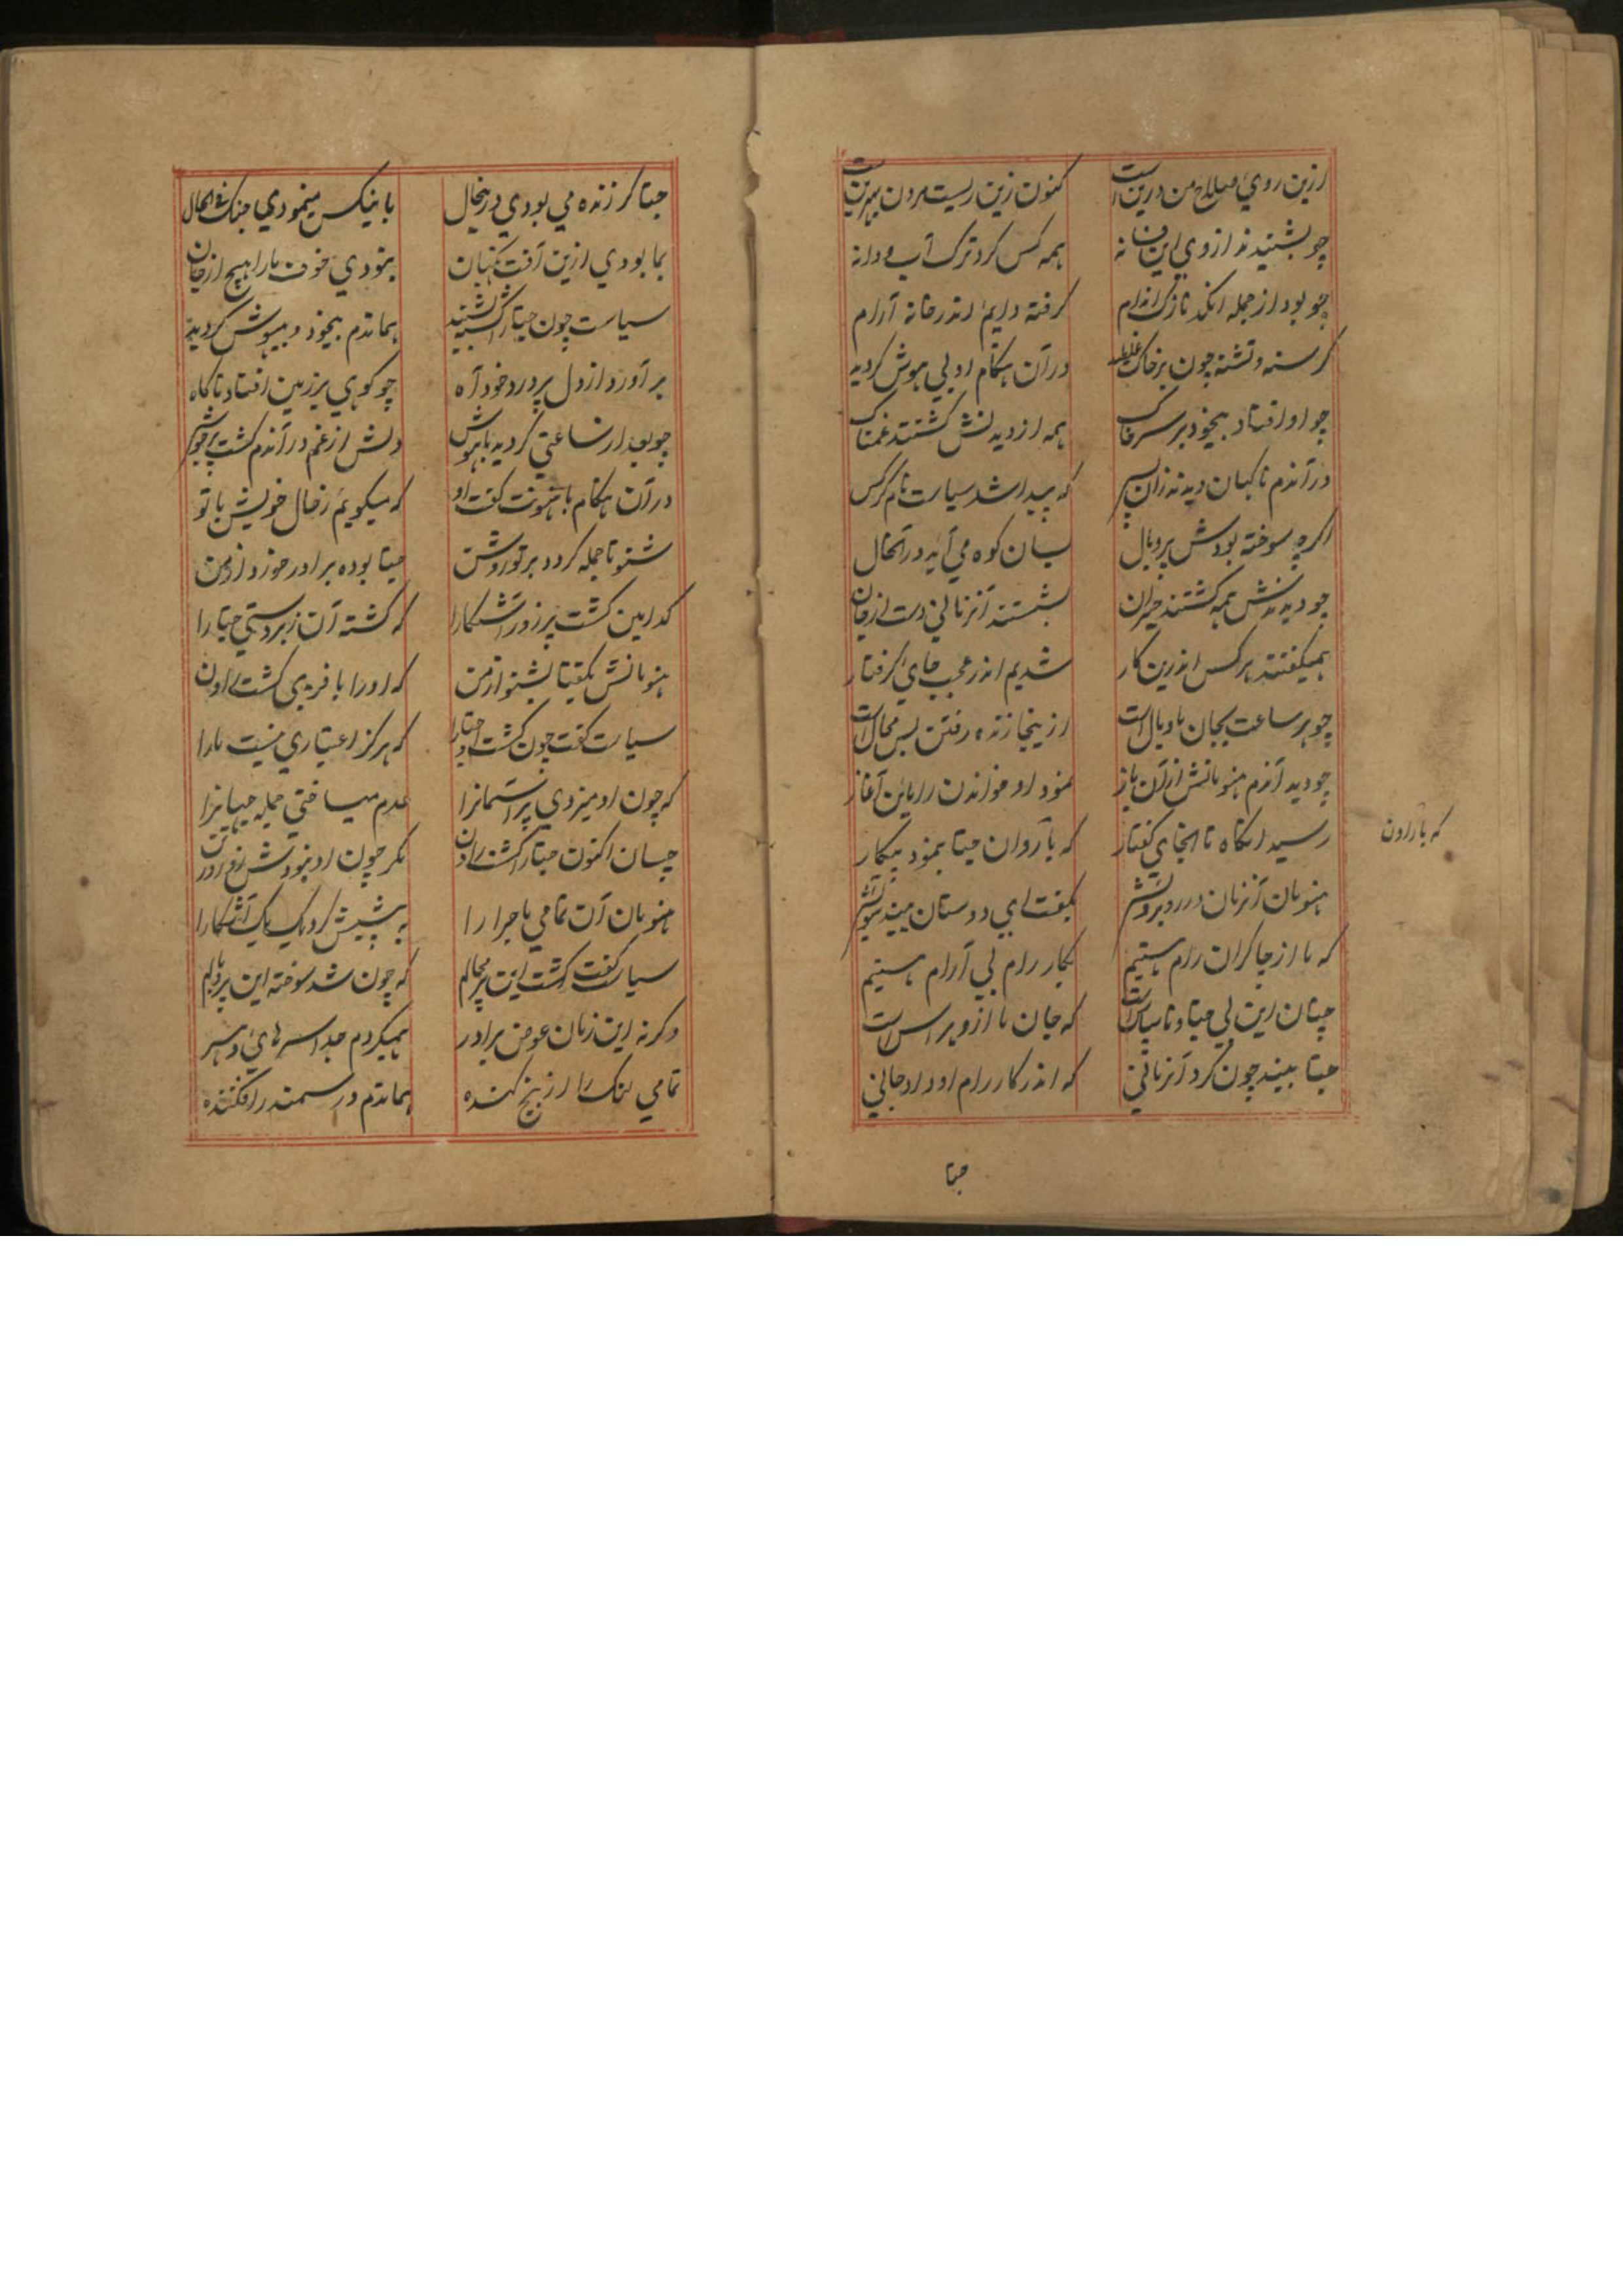 ازین روی صلاح من درین است کنون زین زیست مردن بهترین است
چو بشنیدند از وی این فسانه همه کس کرد ترک آب و دانه
چو بود از جمله انکد نازک اندام کرفته دایم اندر خانه آرام
کرسنه و تشنه چون بر خاک غلطید در آن هنکام او بی هوش کردید
چو او افتاد بیخود بر سر خاک همه از دیدنش کشتند غمناک
در آندم ناکهان دیدند زان پس که پیدا شد سپات نام کرکس
اکرچه سوخته بودش پر و بال بسان کوه می آید در آنحال
چو دیدندش همه کشتند حیران بشستند آنزمانی دست از جان
همیکفتند هر کس اندرین کار شدیم اندر عجب جای کرفتار
چو هر ساعت بجان ما وبال است ازینجا زنده رفتن بس محال است
چو دید آندم هنومانش از آن باز نمود او خواندن راماین آغاز
رسید انکاه تا انجای کفتار که با راون جتا بنمود پیکار
که با راون
هنومان آنزمان در رد برویش بکفت ای دوستان بینید سویش
که ما از چاکران رام هستیم بکار رام بی آرام هستیم
چنان این بی جتا و ناسپاس است که جان ما ازو پر هراس است
جتا بینید چون کرد آنزمانی که اندر کار رام او داد جانی
جتا
جتا کر زنده می بودی درینحال باینکس مینمودی جنک فی الحال
بما بودی ازین آفت نکهبان نبودی خوف ما را هیچ از جان
سپات چون جتا را کشته بشنید هماندم بیخود و بیهوش کردید
بر آورد از دل پر درد خود آه چو کوهی بر زمین افتاد ناکاه
چو بعد از ساعتی کردید باهوش دلش از غم در آندم کشت پر جوش
در آن هنکام با هنونت کفت او که میکویم ز حال خویش با تو
شنو تا جمله کردد بر تو روشن جتا بوده برادر خورد از من
کدامین کشت پر زور آشکارا که کشته آن زبردستی جتا را
هنومانش بکفتا بشنو از من که او را با فریبی کشت راون
سپات کفت چون کشت او جتا را که هرکز اعتباری نیست ما را
که چون او میزدی پر آسمانرا عدم میساختی جمله جهانرا
چسان اکنون جتا را کشت راون مکر چون او نبودش زور در تن
هنومان آن تمامی ماجرا را به پیشش کرد یک یک آشکارا
سپات کفت کشت این پر محالم که چون شد سوخته این پر و بالم
وکرنه این زمان عوض برادر همیکردم جدا سرهای او سر
تمامی لنک را از بیخ کنده هماندم در سمندر افکننده